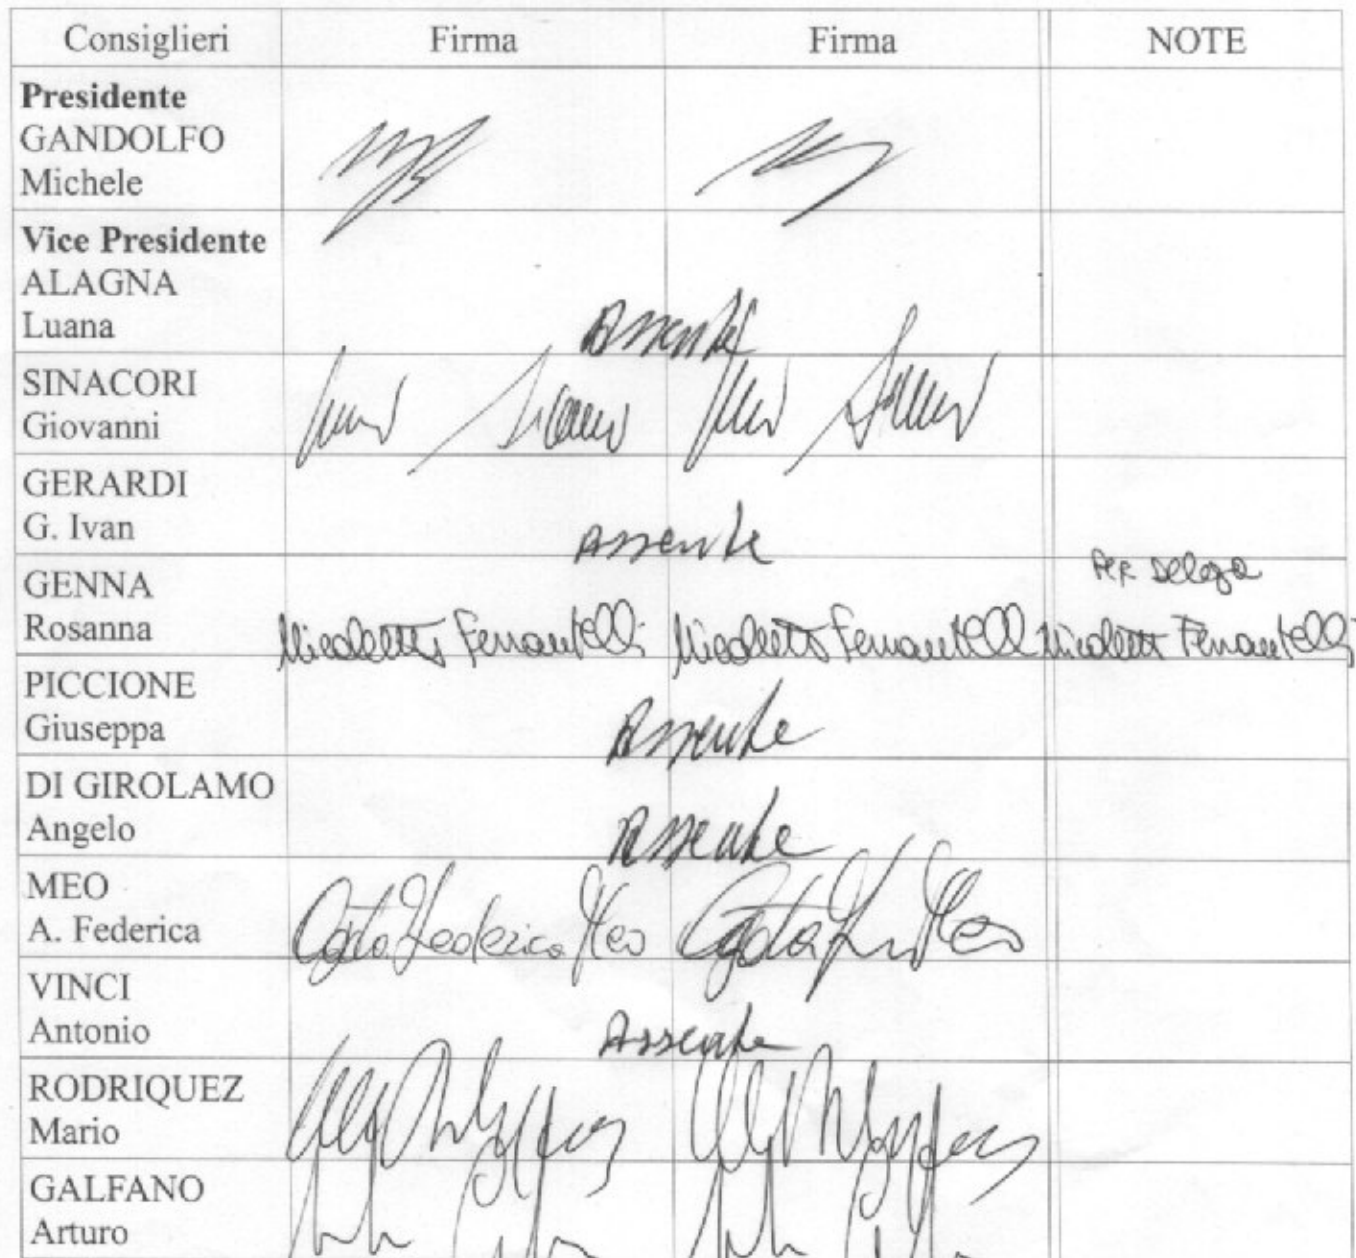 Consiglieri Firma Firma NOTE
Presidente
GANDOLFO
Michele
Vice Presidente
ALAGNA
Luana Assente
SINACORI
Giovanni
GERARDI
G. Ivan Assente
GENNA Per delega
Rosanna Nicoletta Ferrantelli Nicoletta Ferrantelli Nicoletta Ferrantelli
PICCIONE
Giuseppa Assente
DI GIROLAMO
Angelo Assente
MEO
A. Federica Agata Federica Meo Agata Meo
VINCI
Antonio Assente
RODRIQUEZ
Mario
GALFANO
Arturo